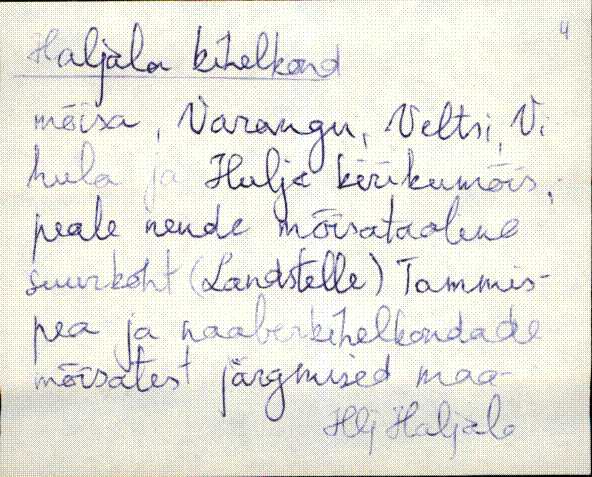 4
Haljala kihelkond
mõisa, Varangu, Veltsi, Vi-
hula ja Hulja kirikumõis,
peale nende mõisataoline
suurkoht (Landstelle) Tammis-
pea ja naaberkihelkondade
mõisatest järgmised maa-
Hlj Haljala